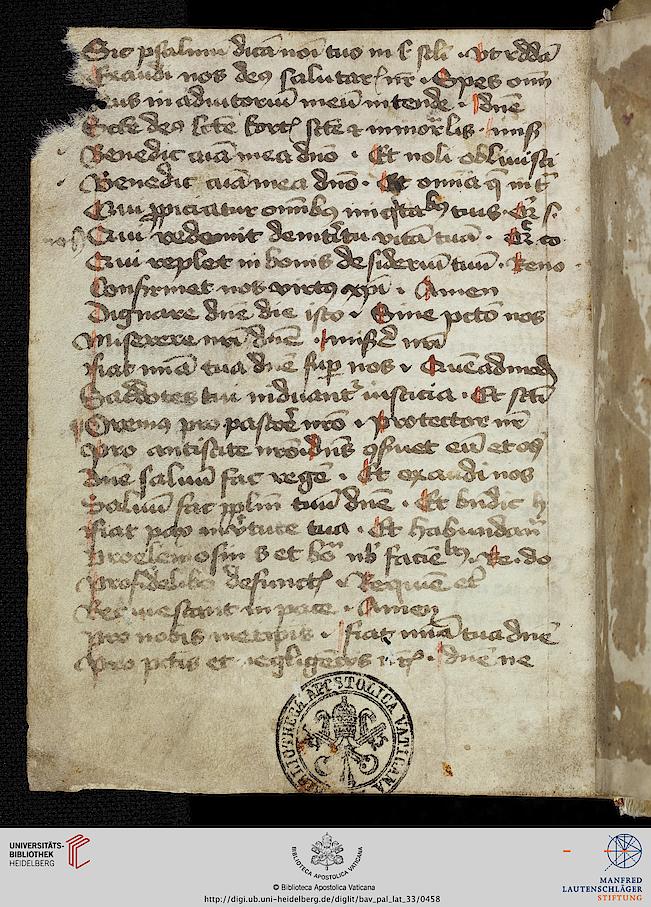 Sic psalmū dicā noī tuo in s̄ sc̄li · Vt reddā
Exaudi nos deꝯ salutarꝭ nr̄ · Spes om̄
us in adiutoriū meū intende · dn̄e
Sc̄te deꝯ sc̄te fortꝭ sc̄te ⁊ inmor̄lis · misß
Benedic aīa mea dn̄o · Et noli obliuisci
Benedic aīa mea dn̄o · Et omīa q̄ in t̄
Qui ꝓpiciatur omībꝯ iniqtatibꝯ tuis · Q̄r s
Qui redemit de interitu vitā tuā · Q̄r co
Qui replet in bonis desideriū tuū · Reno
Confirmet nos virtꝯ xp̄i · Amen
Dignare dn̄e die isto · Sine pctō nos
Miserere nr̄i dn̄e · misẽr nr̄i
Fiat mīa tua dn̄e sup nos · Quēadmod
Sacerdotes tui induant̄ iusticia · Et sctī
Oremꝯ pro pastore nr̄o · Protector nr̄
Pro antistite nr̄o · dn̄s ꝯseruet eū et
Dn̄e saluū fac regē · Et exaudi nos
Saluū fac pplm̄ tuū dn̄e · Et bn̄dic h
Fiat pax in v̄tute tua · Et habundan̄
Pro elemosinis et bō nb̄ faciētbꝯ · Re · do
Pro fidelibꝯ defunctꝭ · Requiē et̄
Requiescant in pace · Amen
Pro nobis metipīs · fiat mīa tua dn̄e
Pro pctis et negligēcys · dn̄e ne
BIBLIOTHECA APOSTOLICA VATICANA
UNIVERSITÄTS-
BIBLIOTHEK
HEIDELBERG
BIBLIOTECA APOSTOLICA VATICANA
© Biblioteca Apostolica Vaticana
http://digi.ub.uni-heidelberg.de/diglit/bav_pal_lat_33/0458
MANFRED
LAUTENSCHLÄGER
STIFTUNG